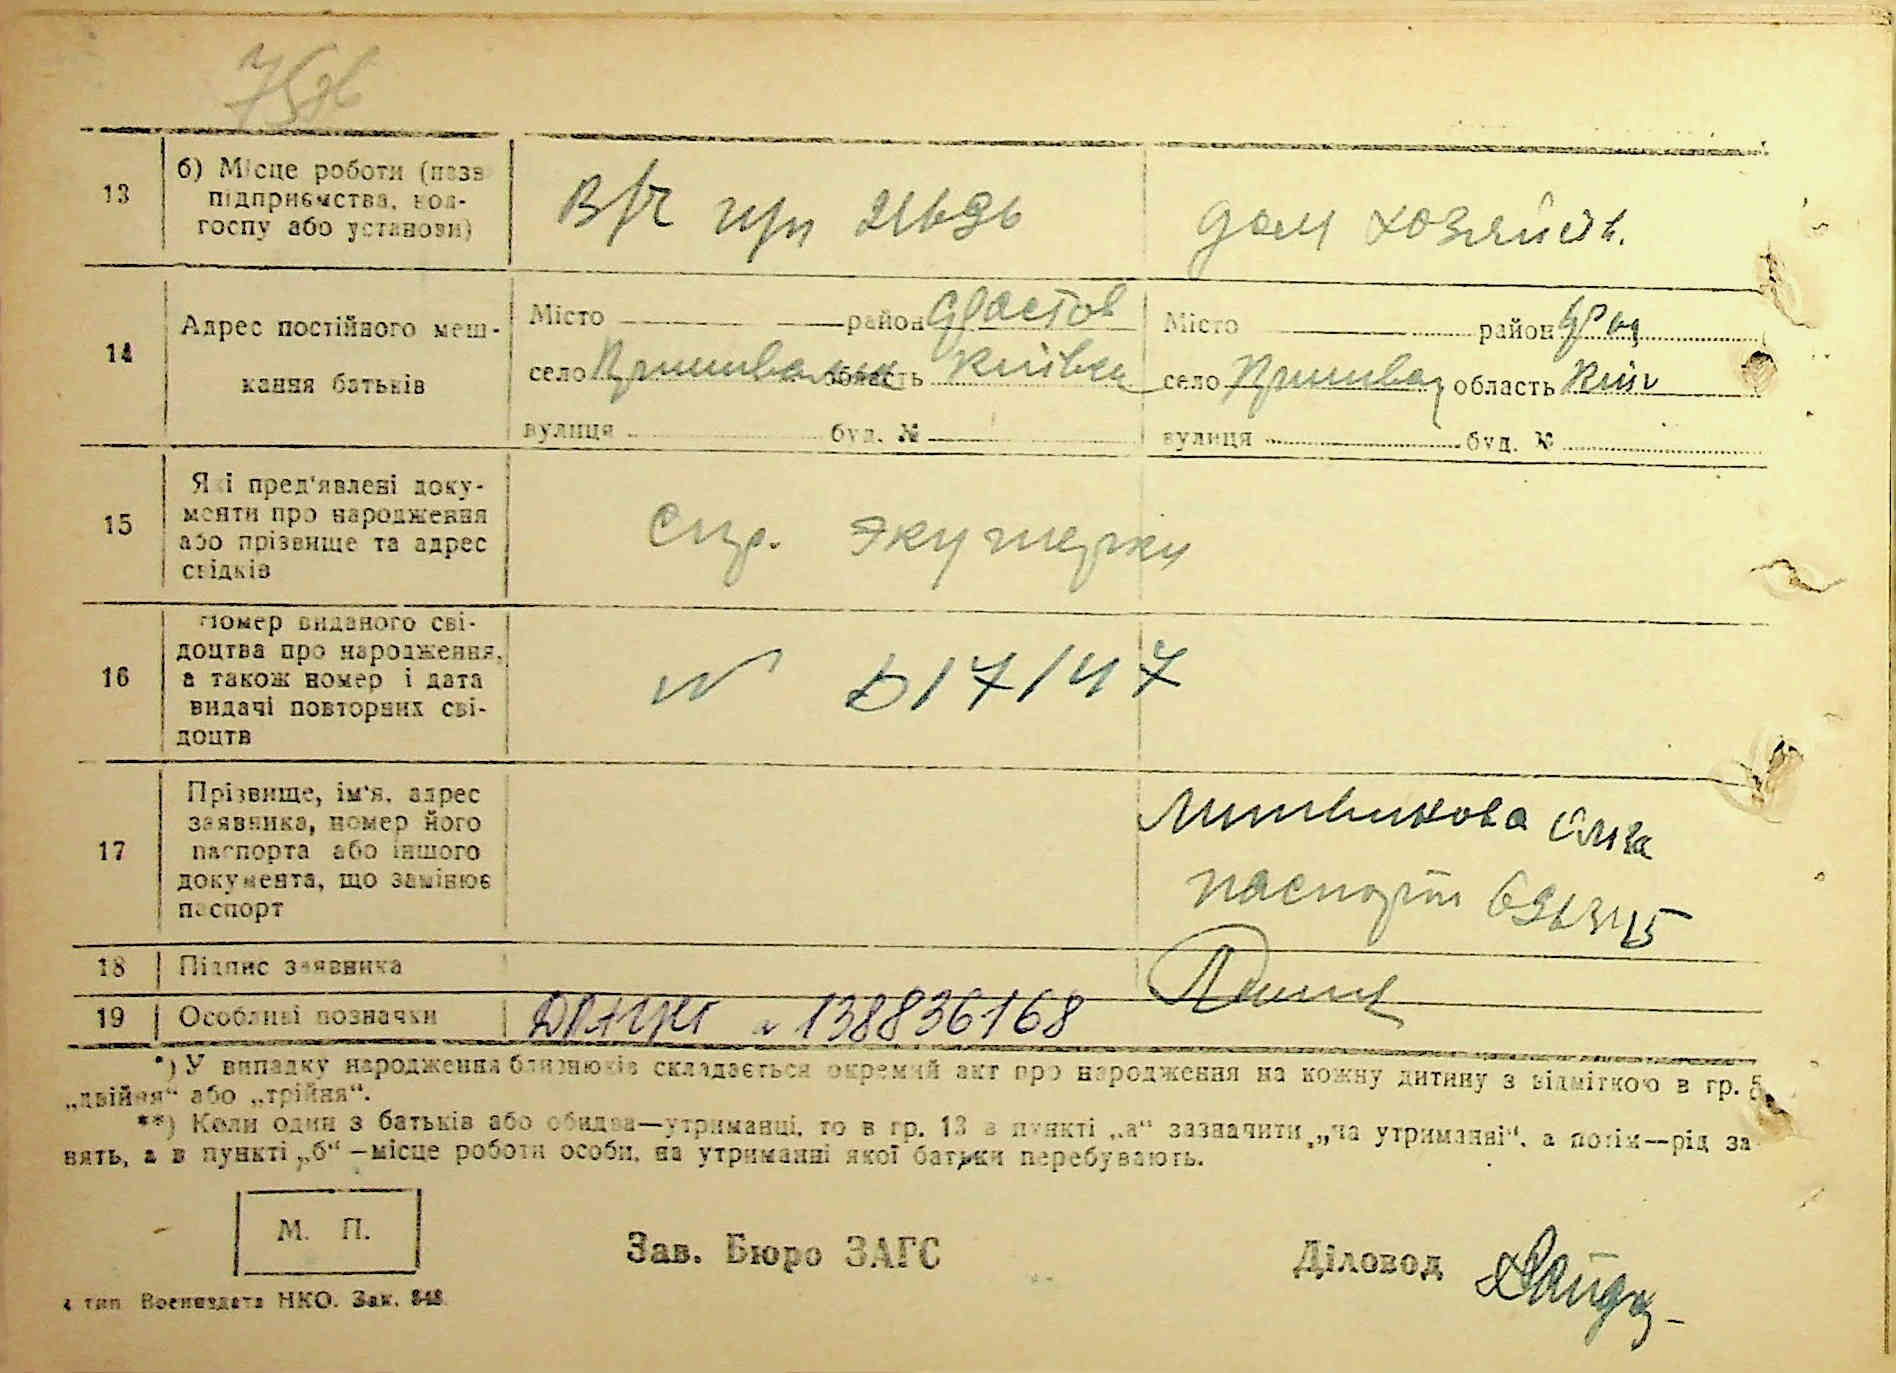 13
б) Місце роботи (назв
підприємства, кол-
госпу або установи)
В/ч п/п
дом хозяйств.
14
Адрес постійного меш-
кання батьків
Місто район Фастов
село область Київска
вулиця буд. №
Місто район Фас
село область Київ
вулиця буд. №
15
Які пред'явлені доку-
менти про народження
або прізвище та адрес
свідків
Спр. экушерки
16
Номер виданого сві-
доцтва про народження,
а також номер і дата
видачі повторних сві-
доцтв
№ 017147
17
Прізвище, ім'я, адрес
заявника, номер його
паспорта або іншого
документа, що замінює
паспорт
Литвинова
паспорт
18
Підпис заявника
19
Особливі позначки
138836168
*) У випадку народження близнюків складається окремий акт про народження на кожну дитину з відміткою в гр. 5
„двійня“ або „трійня“.
**) Коли один з батьків або обидва—утриманці, то в гр. 13 в пункті „а“ зазначити „на утриманні“, а потім—рід за
нять, а в пункті „б“ —місце роботи особи, на утриманні якої батьки перебувають.
М. П.
Зав. Бюро ЗАГС
Діловод
4 тип Воениздата НКО. Зак. 848.